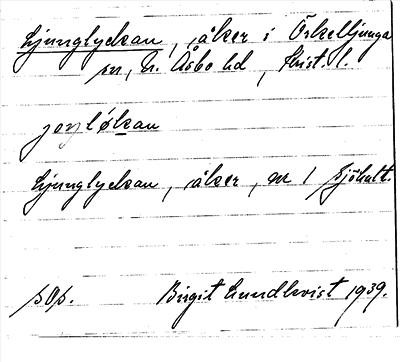 Ljunglyckan, åker i Örkelljunga
sn, N. Åsbo hd, Krist. l.
joŋløkan
Ljunglyckan, åker, nr 1 Sjöhult.
sOp. Birgit Lundkvist 1939.